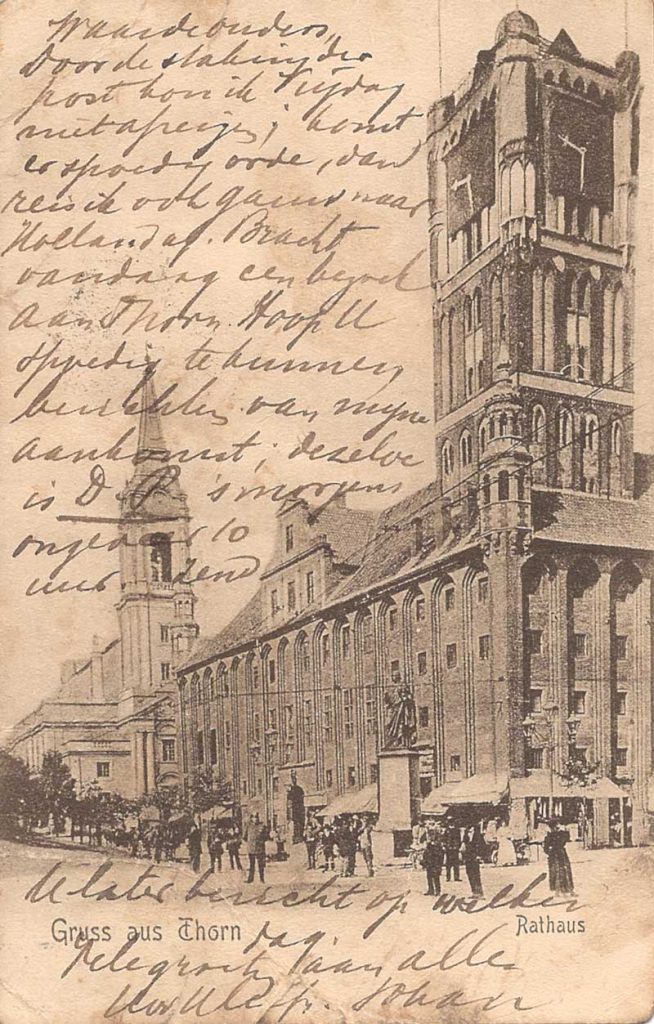 Waarde ouders,
Door de staking der
post kon ik Vrijdag
niet afreizen; komt
er spoedig orde, dan
reis ik ook gauw naar
Holland af. Bracht
vandaag een bezoek
aan Thorn. Hoop U
spoedig te kunnen
berichten van mijne
aankomst; dezelve
is D.V. 's morgens
ongeveer 10
uur zend
U later bericht op welken
Gruss aus Thorn
Rathaus
dag.
Telegroet aan allen
Johan